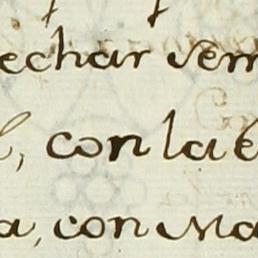 echar sem
, con la e
a, con Ma